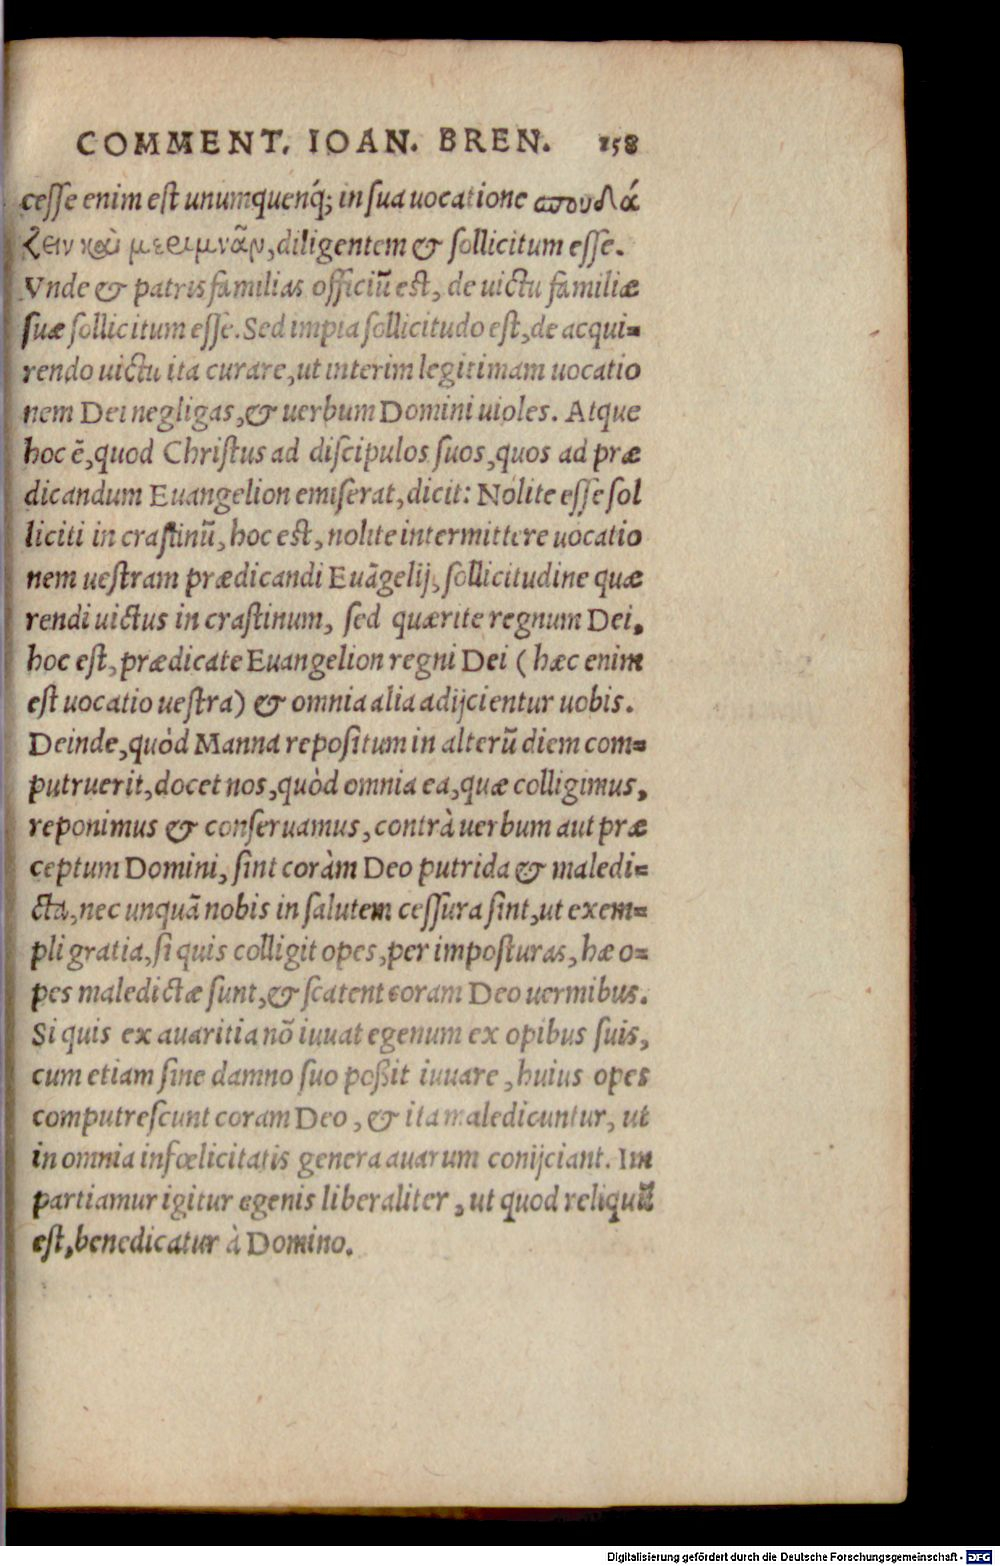 COMMENT. IOAN. BREN. 158
cesse enim est unumquenq́; in sua uocatione σπουδά
ζειν καὶ μεριμνᾶν, diligentem & sollicitum esse.
Vnde & patris familias officiũ est, de uictu familiæ
suæ sollicitum esse. Sed impia sollicitudo est, de acqui-
rendo uictu ita curare, ut interim legitimam uocatio
nem Dei negligas, & uerbum Domini uioles. Atque
hoc ẽ, quod Christus ad discipulos suos, quos ad præ
dicandum Euangelion emiserat, dicit: Nolite esse sol
liciti in crastinũ, hoc est, nolite intermittere uocatio
nem uestram prædicandi Euãgelij, sollicitudine quæ
rendi uictus in crastinum, sed quærite regnum Dei,
hoc est, prædicate Euangelion regni Dei (hæc enim
est uocatio uestra) & omnia alia adijcientur uobis.
Deinde, quòd Manna repositum in alterũ diem com-
putruerit, docet nos, quòd omnia ea, quæ colligimus,
reponimus & conseruamus, contrà uerbum aut præ
ceptum Domini, sint coràm Deo putrida & maledi-
cta, nec unquã nobis in salutem cessura sint, ut exem-
pli gratia, si quis colligit opes, per imposturas, hæ o-
pes maledictæ sunt, & scatent coram Deo uermibus.
Si quis ex auaritia nõ iuuat egenum ex opibus suis,
cum etiam sine damno suo poßit iuuare, huius opes
computrescunt coram Deo, & ita maledicuntur, ut
in omnia infœlicitatis genera auarum conijciant. Im
partiamur igitur egenis liberaliter, ut quod reliquũ
est, benedicatur à Domino.
Digitalisierung gefördert durch die Deutsche Forschungsgemeinschaft - DFG